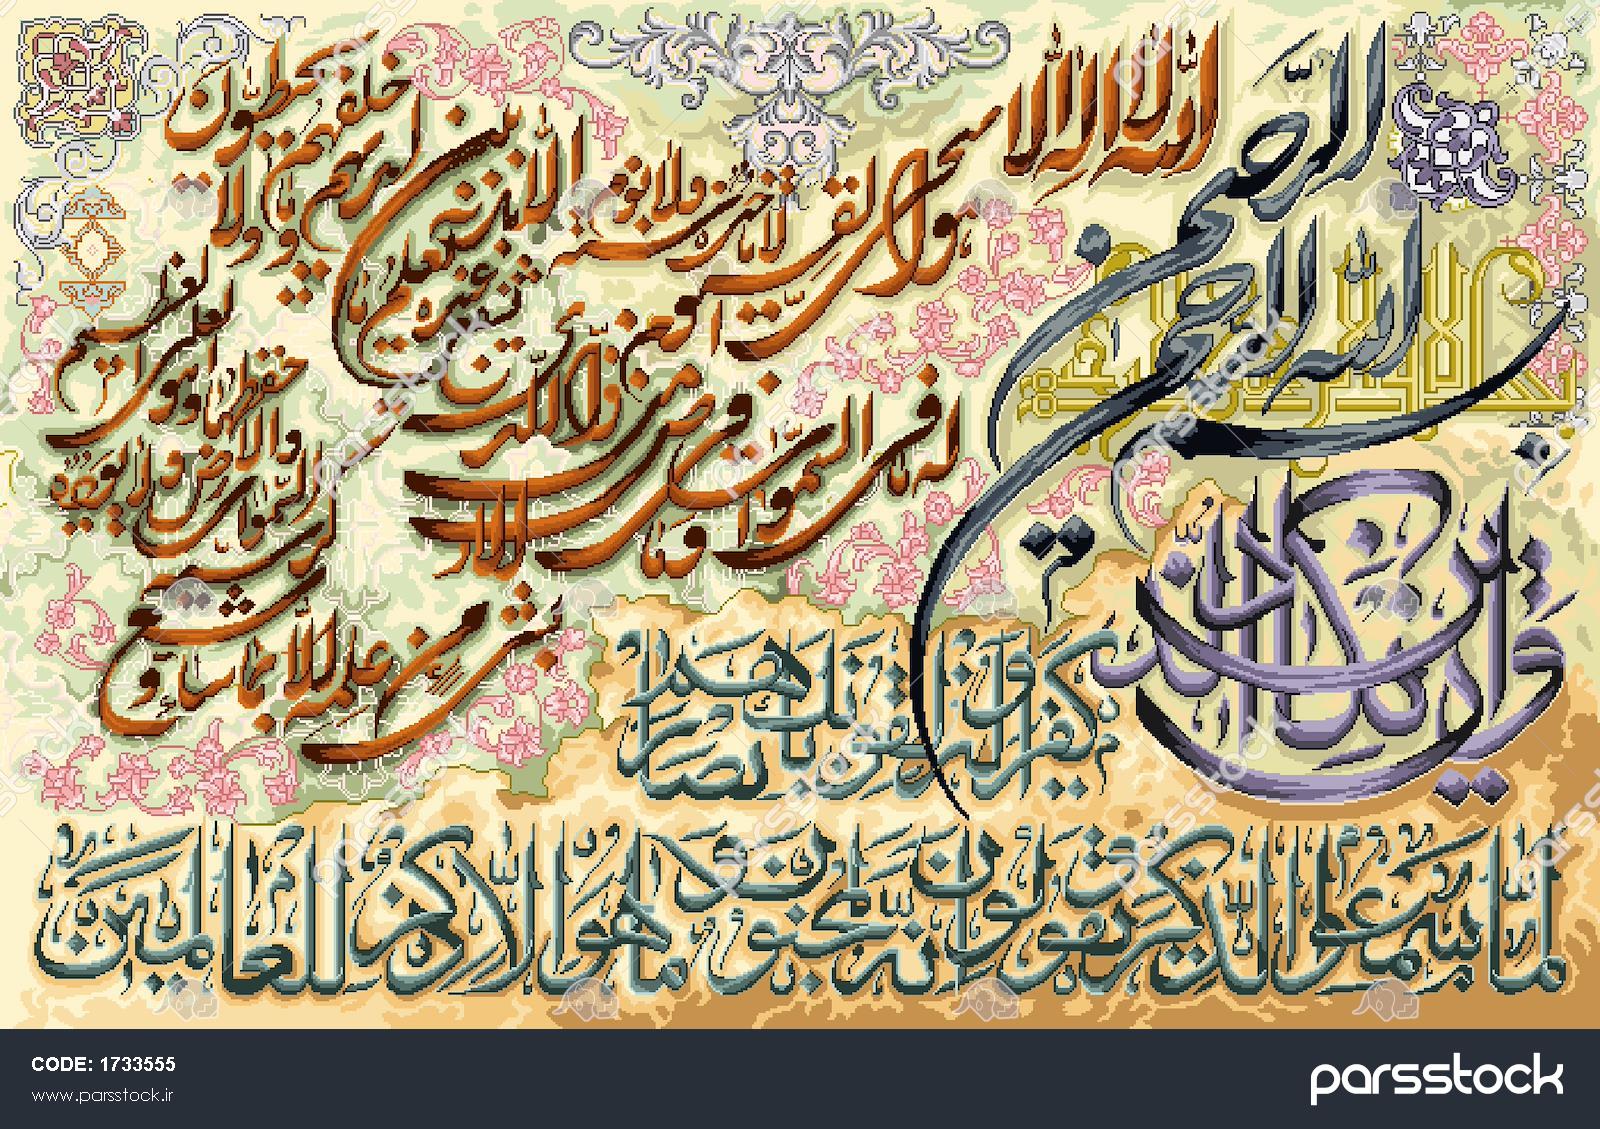 بسم الله الرحمن الرحیم
الله لا اله الا هو الحی القیوم
لا تاخذه سنة ولا نوم
له ما فی السموات وما فی الارض
من ذا الذی یشفع عنده الا باذنه
یعلم ما بین ایدیهم وما خلفهم
ولا یحیطون بشیء من علمه الا بما شاء
وسع کرسیه السموات والارض
ولا یوده حفظهما وهو العلی العظیم
وان یکاد الذین
کفروا لیزلقونک بابصارهم
لما سمعوا الذکر ویقولون انه لمجنون وما هو الا ذکر للعالمین
CODE: 1733555
www.parsstock.ir
parsstock